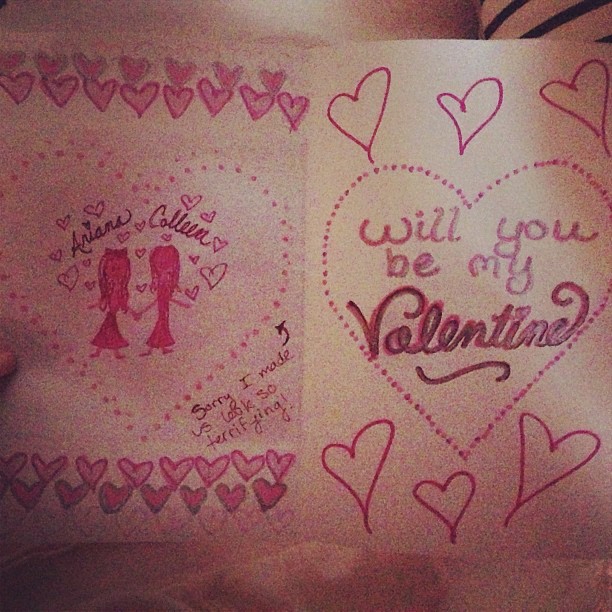 Ariana Colleen
Sorry I made
us look so
terrifying!
will you
be my
Valentine?